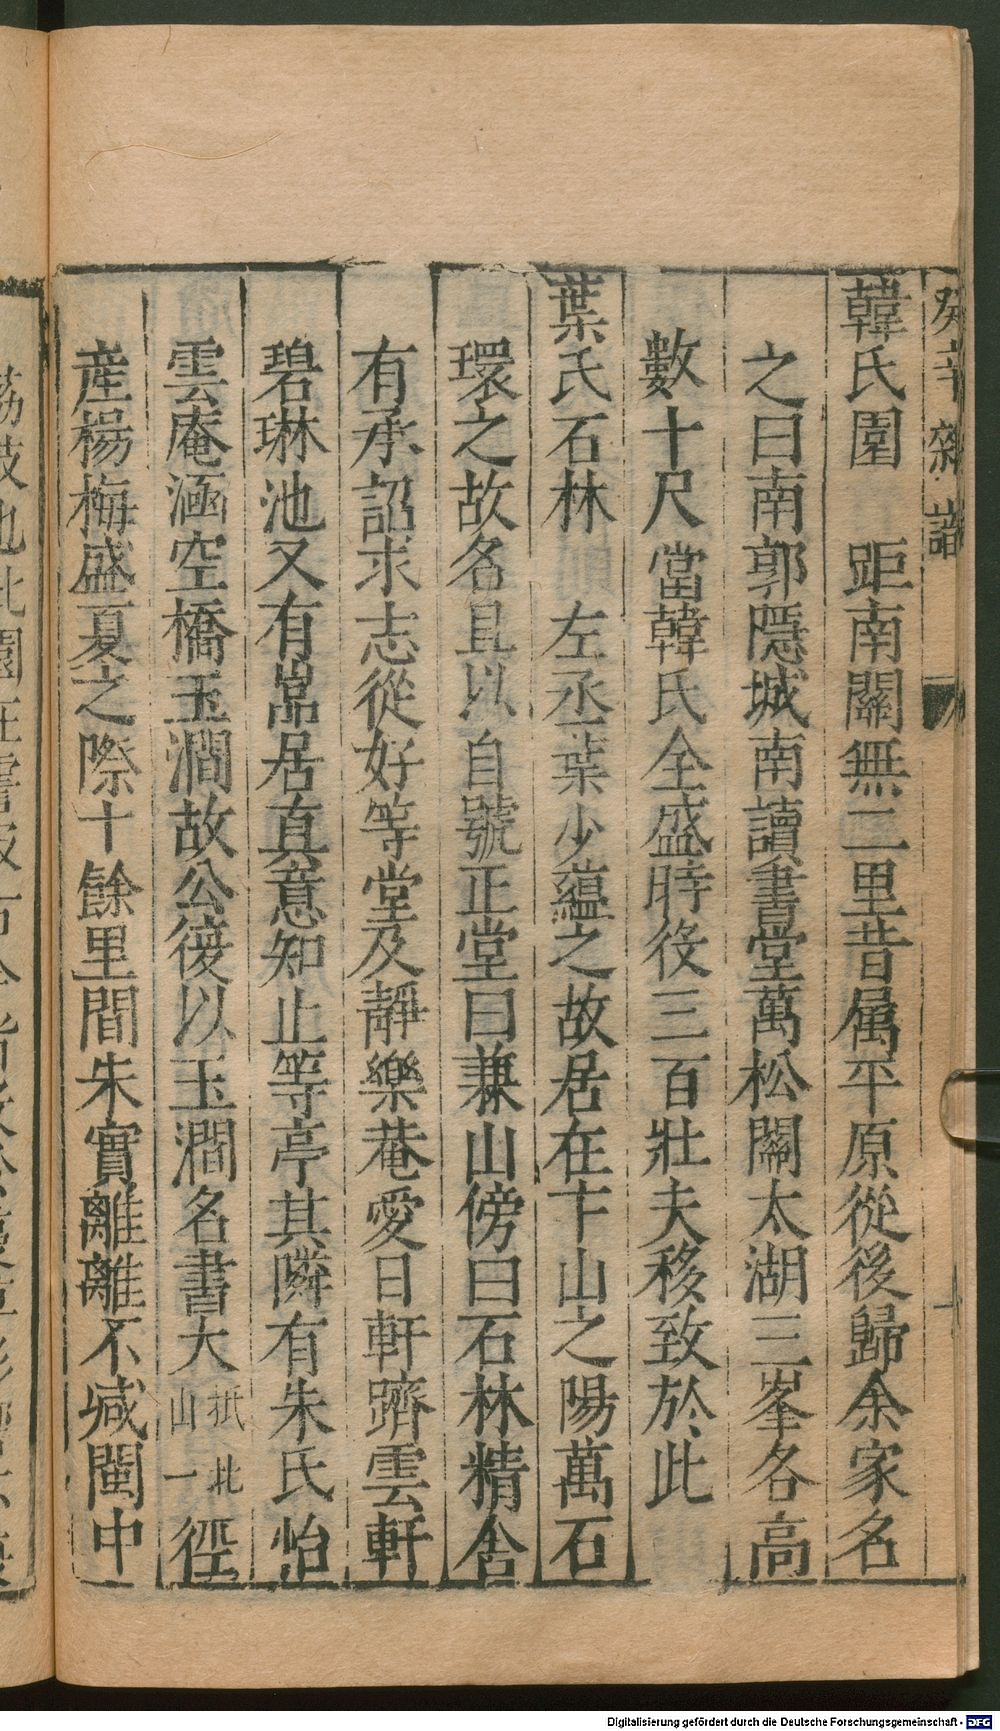 韓氏園　距南關無二里昔屬平原從後歸余家名
之曰南郭隱城南讀書堂萬松關太湖三峯各高
數十尺當韓氏全盛時役三百壯夫移致於此
葉氏石林　左丞葉少蘊之故居在卞山之陽萬石
環之故名且以自號正堂曰兼山傍曰石林精舍
有承詔求志從好等堂及靜樂菴愛日軒躋雲軒
碧琳池又有嵓居真意知止等亭其隣有朱氏怡
雲庵涵空橋玉澗故公後以玉澗名書大抵北山一徑
産楊梅盛夏之際十餘里間朱實離離不減閩中
癸辛雜識
Digitalisierung gefördert durch die Deutsche Forschungsgemeinschaft - DFG